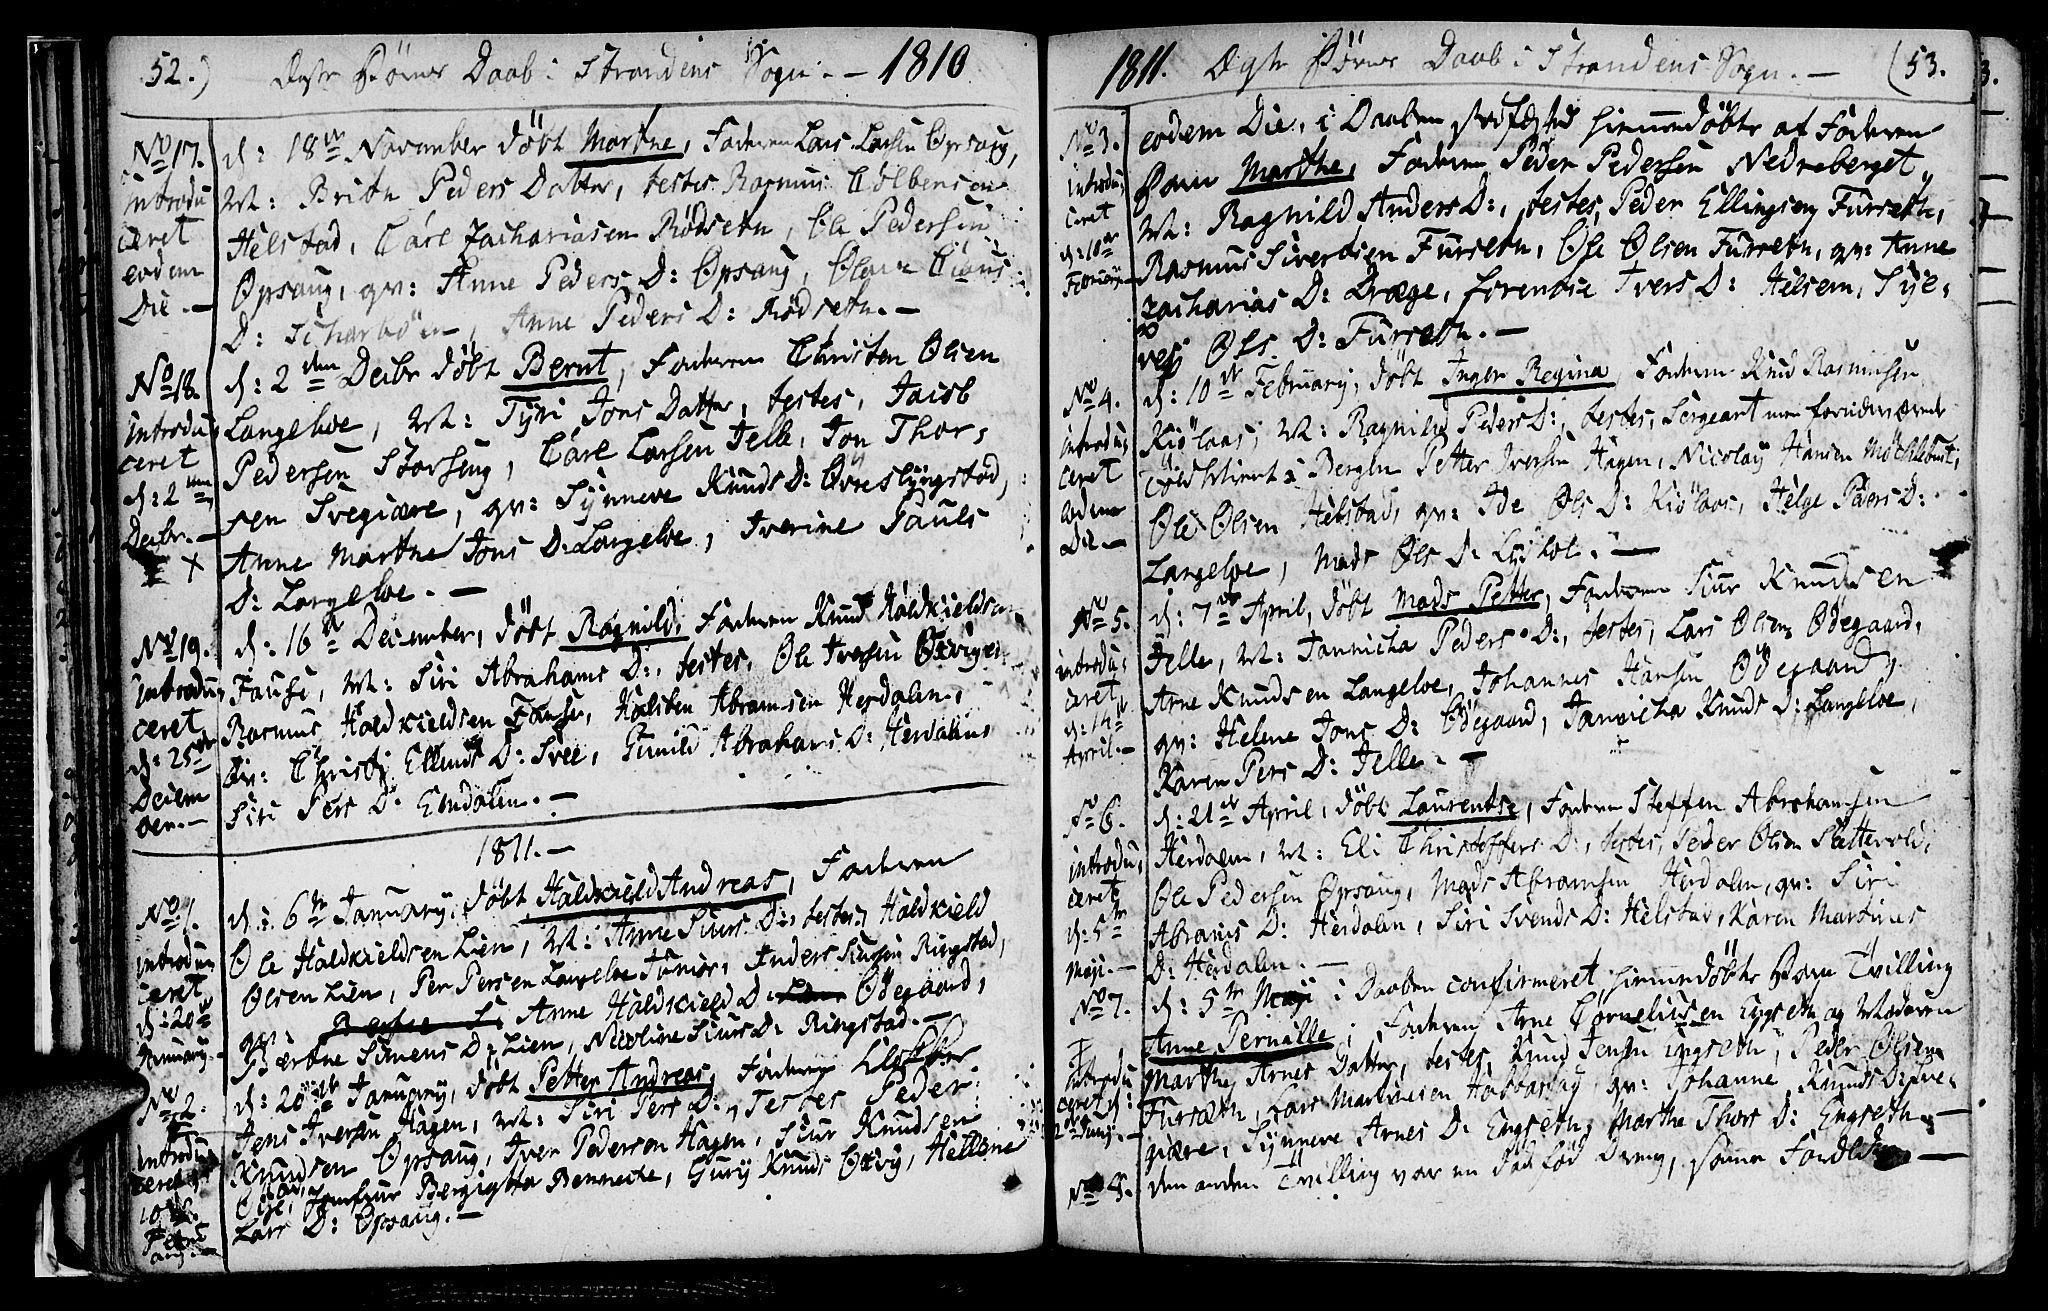 52.) Ægte Børns Daab i Strandens Sogn. — 1810
No 17.
introdu
ceret
eodem
Die. —
d: 18de November døbt Marthe, Faderen Lars Larsen Opsaug,
M: Brith Peders Datter, testes Rasmus Colbensen
Helstad, Carl Zachariasen Rødseth, Ole Pedersen
Opsaug, qv: Anne Peders D: Opsaug, Olave
D: Anne Peders D: Rødseth. —
No 18.
introdu
ceret
d: 2den
Decbr. —
+
d: 2den Decbr døbt Bernt, Faderen Christen Olsen
Langeloe, M: Tyri Jons Datter, testes, Jacob
Pedersen Storseng, Carl Larsen Jelle, Jon Thor-
sen Svegjære, qv: Synneve Knuds D: Øvresljngstad,
Anne Marthe Jons D: Langeloe, Iverine Pauls
D: Langeloe. —
No 19.
introdu
ceret
d: 25de
Decem
ber. —
d: 16de December, døbt Ragnild, Faderen Knud Haldkieldsen
Fause, M: Siri Abrahams D:, testes, Ole Iversen
Rasmus Haldkieldsen Fause, Halsten Abramsen Herdalen,
qv: Christj Ellends D: Svee, Gunild Abrahams D: Herdalen
Siri Pers D: Emdalen. —
1811. —
No 1.
introdu
ceret
d: 20de
January. —
d: 6te January, døbt Haldkield Andreas, Faderen
Ole Haldkieldsen Lien, M: Anne Siurs D:, testes, Haldkield
Olsen Lien, Per Persen Langeloe Junior, Anders Siursen Ringstad,
qv: Anne Haldkield D: Ødegaard,
Berthe Simens D: Lien, Nicoline Siurs D: Ringstad. —
No 2.
introdu
ceret
10de
Febru
ary. —
d: 20de January, døbt Petter Andreas, Faderen
Jens Iversen Hagen, M: Siri Pers D:, testes Peder
Knudsen Opsaug, Iver Pedersen Hagen, Siur Knudsen
Jomfrue Bergitha Bennecke, Gurj Knuds Hellene
Lars D: Opsaug. —
1811. Ægte Børns Daab i Strandens Sogn. — (53.
No 3.
introdu
ceret
d: 10de
February —
eodem Die, i Daaben stadfæsted hiemmedøbte af Faderen
Barn Marthe, Faderen Peder Pedersen Nedreberget,
M: Ragnild Anders D:, testes, Peder Ellingsen Furseth,
Rasmus Sivertsen Furseth, Ole Olsen Furseth, qv: Anne
Zacharias D: Dræge, Lorendse Ivers D: Helsem, Syl-
vej Ols D: Furseth. —
No 4.
introdu
ceret
eodem
Die —
d: 10de February, døbt Inger Regina, Faderen Knud Rasmusen
Kiølaas, M: Ragnild Peders D:, testes, Sergeant
i Bergen Petter Iversen Hagen, Nicolay Hansen Møchlebust,
Ole Olsen Helstad, qv: Ide Ols D: Kiølaas, Helge Peders D:
Langeloe, Mads Ols D: —
No 5.
introdu
ceret
d: 14de
April. —
d: 7de April, døbt Mads Petter, Faderen Siur Knudsen
Jelle, M: Jannicha Peders D:, testes, Lars Olsen Ødegaard,
Arne Knudsen Langeloe, Johannes Hansen Ødegaard,
qv: Helene Jons D: Ødegaard, Jannicha Knuds D: Langeloe,
Karen Pers D: Jelle. —
No 6.
introdu
ceret
d: 5te
Maji. —
d: 21de April, døbt Laurentse, Faderen Steffen Abrahamsen
Herdalen, M: Eli Christoffers D:, testes, Peder Olsen Slettevold,
Ole Pedersen Opsaug, Mads Abramsen Herdalen, qv: Siri
Abrams D: Herdalen, Siri Svends D: Helstad, Karen Martines
D: Herdalen. —
No 7.
introdu
ceret d:
2de Junj. —
d: 5te Maji i Daaben confirmeret, hiemmedøbte Barn Tvilling
Anne Pernille, Faderen Arne Corneliusen Engseth og Moderen
Marthe Arnes Datter, testes Knud Jensen Engseth, Peder Olsen
Furseth, Lars Martinusen qv: Johanne Knuds D: Sve-
giære, Synneve Arnes D: Engseth, Marthe Thors D: Engseth. —
No 8.
den anden Tvilling var en død fød Dreng, samme Forældre —